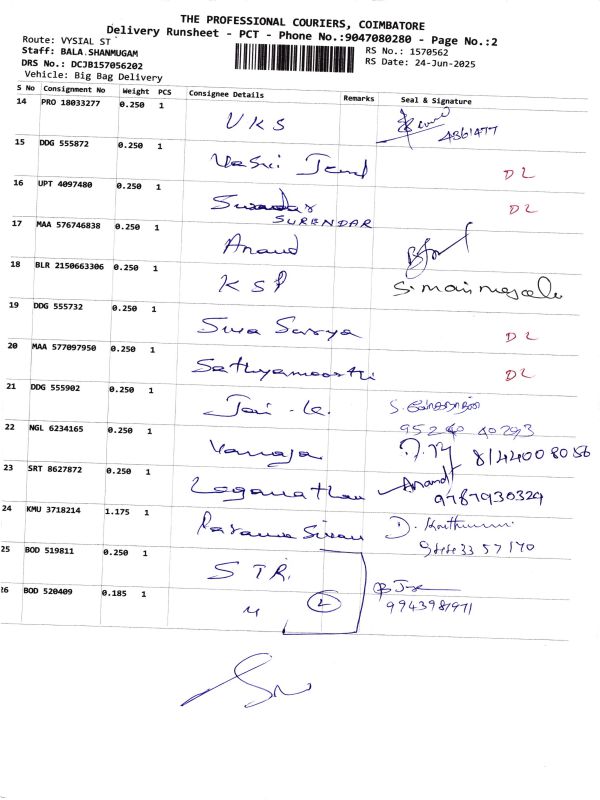 THE PROFESSIONAL COURIERS, COIMBATORE
Delivery Runsheet - PCT - Phone No.:9047080280 - Page No.:2
Route: VYSIAL ST
Staff: BALA.SHANMUGAM
RS No.: 1570562
DRS No.: DCJB157056202
RS Date: 24-Jun-2025
Vehicle: Big Bag Delivery
S No Consignment No Weight PCS Consignee Details Remarks Seal & Signature
14 PRO 18033277 0.250 1
VKS
4861477
15 DDG 555872 0.250 1
DL
16 UPT 4097480 0.250 1
SURENDAR DL
17 MAA 576746838 0.250 1
Anand
18 BLR 2150663306 0.250 1
KSP
19 DDG 555732 0.250 1
Siva Saraya DL
20 MAA 577097950 0.250 1
Sathyamoorthi DL
21 DDG 555902 0.250 1
Jai
95240 40293
22 NGL 6234165 0.250 1
Vanaja 8144008056
23 SRT 8627872 0.250 1
Loganathan Anandh
9787930329
24 KMU 3718214 1.175 1
D.
25 BOD 519811 0.250 1
STR.
26 BOD 520409 0.185 1
2
9943981971